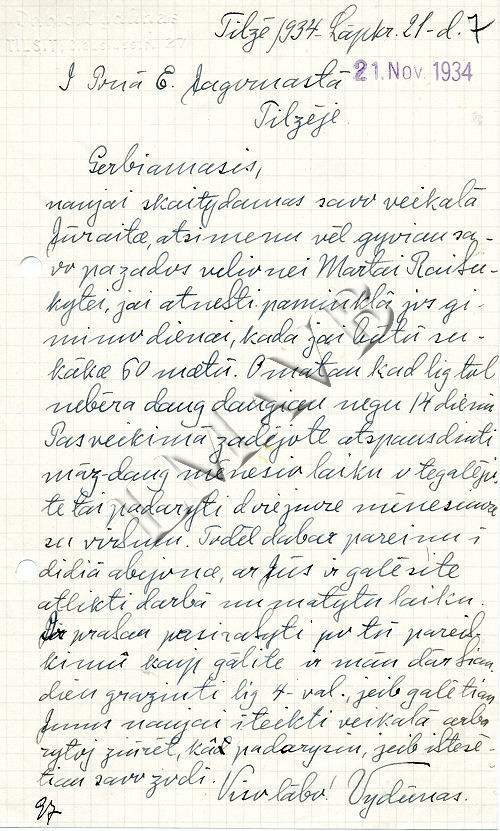 Tilžė 1934. Lapkr. 21-d. 7
21. Nov. 1934
Į Poną E. Jagomastą
Tilžėje.
Gerbiamasis,
naujai skaitydamas savo veikalą
Jūraitę, atsimenu vėl gyviau sa-
vo pažadus velionei Martai Raišu-
kytei, jai atnešti paminklą jos gi-
mimo dienai, kada jai būtų su-
kakę 60 metų. O matau kad lig tol
nebėra daug daugiau negu 14 dienų
Pasveikimą žadėjote atspausdinti
máž-daug mėnesio laiku o tegalėjo-
te tai padaryti dviejuose mėnesiuose
su viršum. Todėl dabar pareinu į
didią abejonę, ar Jūs ir galėsite
atlikti darbą numatytu laiku.
prašau pasirašyti po tų pareiš-
kimų kaip gálite ir mán dár šian-
dien grąžinti lig 4-val., jeib galėtiau
Jums naujai įteikti veikalą arba
rytoj žiūrėt, ką padarysiu, jeib ištesė-
tiau savo žodį.
Viso labo! Vydūnas.
LMAVB